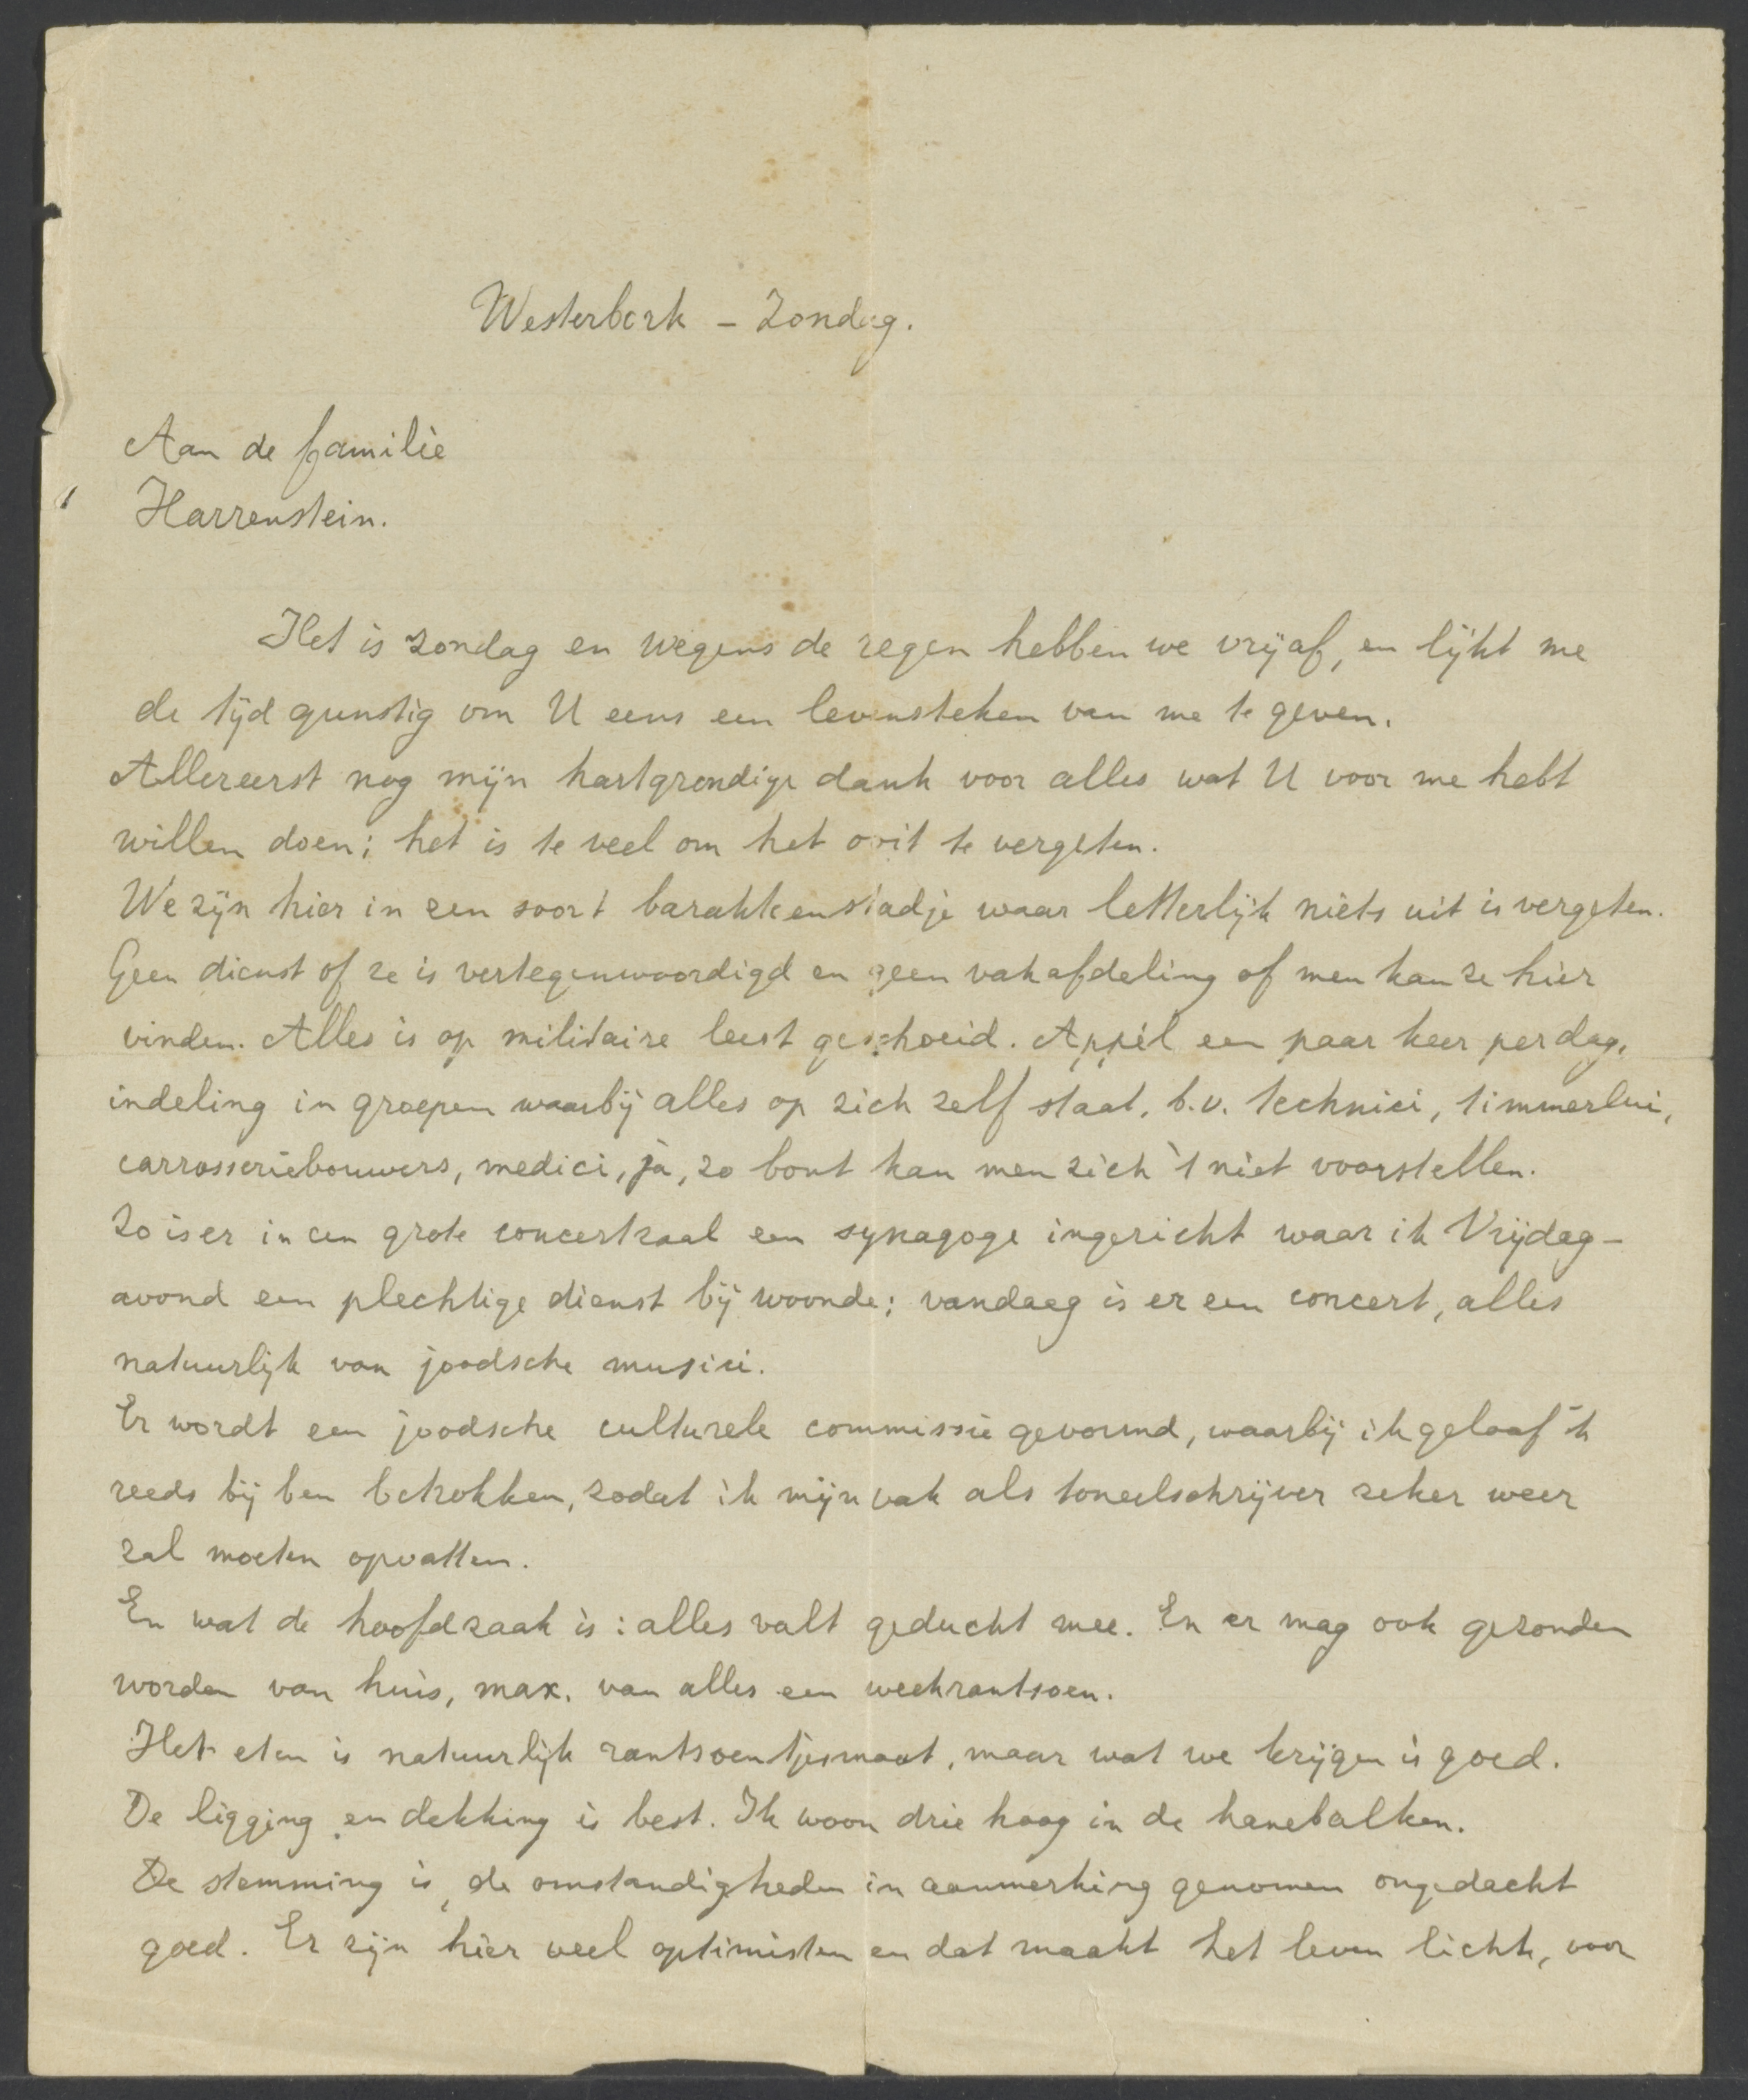 Westerbork – Zondag.
Aan de familie
Harrenstein.
Het is zondag en wegens de regen hebben we vrijaf, en lijkt me
de tijd gunstig om U eens een levensteken van me te geven.
Allereerst nog mijn hartgrondige dank voor alles wat U voor me hebt
willen doen; het is te veel om het ooit te vergeten.
We zijn hier in een soort barakkenstadje waar letterlijk niets uit is vergeten.
Geen dienst of ze is vertegenwoordigd en geen vakafdeling of men kan ze hier
vinden. Alles is op militaire leest geschoeid. Appèl een paar keer per dag,
indeling in groepen waarbij alles op zich zelf staat, b.v. technici, timmerlui,
carrosseriebouwers, medici, ja, zo bont kan men zich 't niet voorstellen.
Zo is er in een grote concertzaal een synagoge ingericht waar ik Vrijdag-
avond een plechtige dienst bij woonde; vandaag is er een concert, alles
natuurlijk van joodsche musici.
Er wordt een joodsche culturele commissie gevormd, waarbij ik geloof ik
reeds bij ben betrokken, zodat ik mijn vak als toneelschrijver zeker weer
zal moeten opvatten.
En wat de hoofdzaak is: alles valt geducht mee. En er mag ook gezonden
worden van huis, max. van alles een weekrantsoen.
Het eten is natuurlijk rantsoentjesmaat, maar wat we krijgen is goed.
De ligging en dekking is best. Ik woon drie hoog in de hanebalken.
De stemming is, de omstandigheden in aanmerking genomen ongedacht
goed. Er zijn hier veel optimisten en dat maakt het leven licht, voor